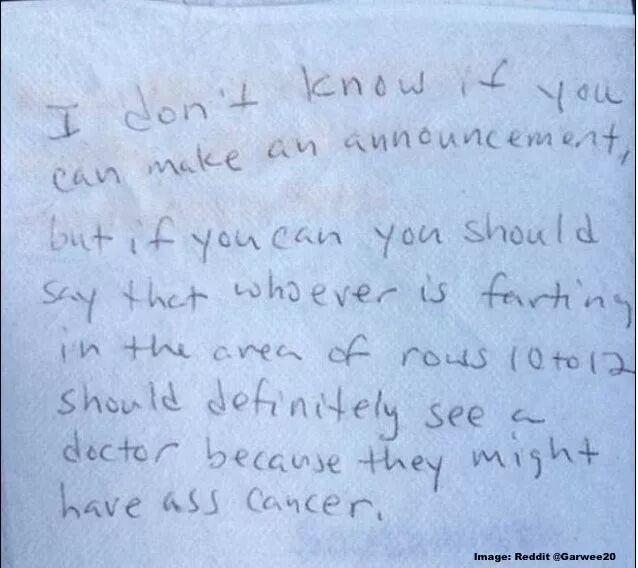 I don't know if you
can make an announcement,
but if you can you should
say that whoever is farting
in the area of rows 10 to 12
should definitely see a
doctor because they might
have ass cancer.
Image: Reddit @Garwee20